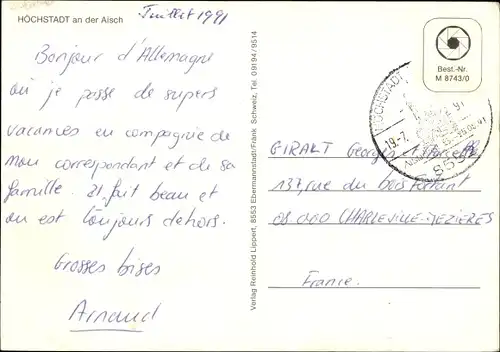 HÖCHSTADT an der Aisch
Juillet 1991
Bonjour d'Allemagne
où je passe de supers
vacances en compagnie de
mon correspondant et de sa
famille. Il fait beau et
on est toujours dehors.
Grosses bises
Arnaud
Verlag Reinhold Lippert, 8553 Ebermannstadt/Frank. Schweiz, Tel. 09194/9514
Best.-Nr.
M 8743/0
HÖCHSTADT
GIRALT Georges
137, rue du bois fortant
08000 CHARLEVILLE-MEZIERES
France.